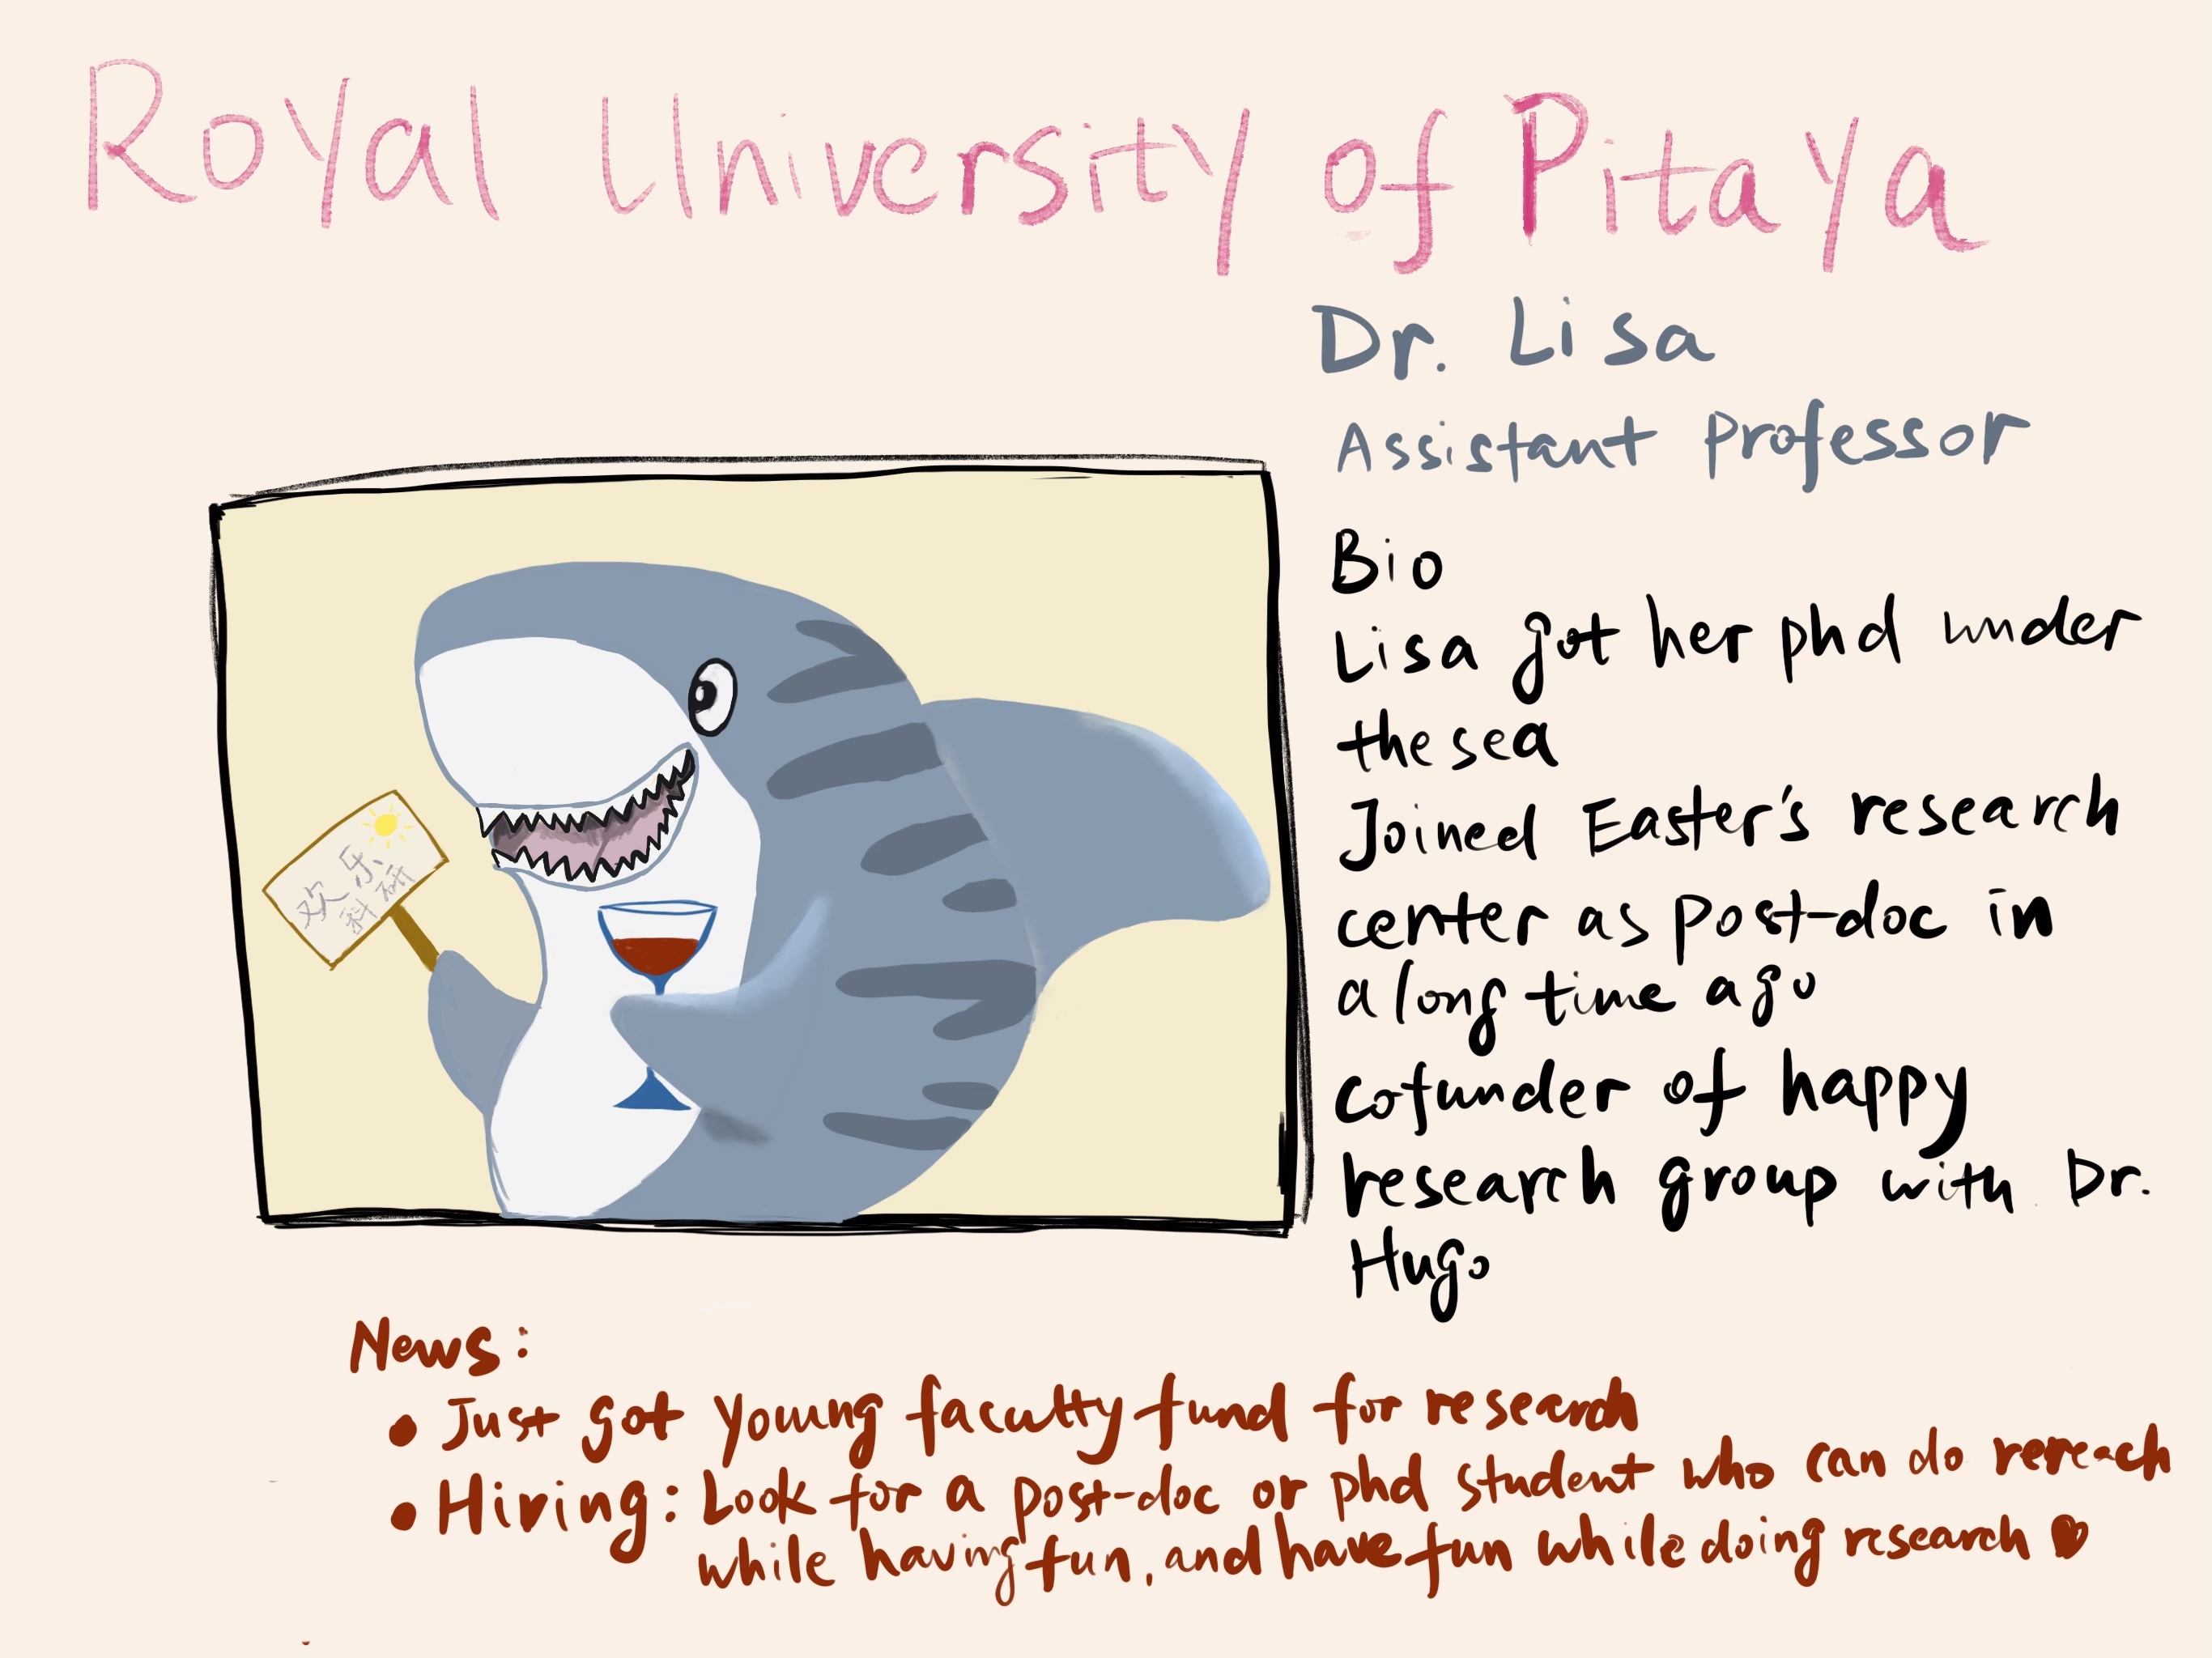 Royal University of Pitaya
Dr. Lisa
Assistant professor
Bio
Lisa got her phd under
the sea
Joined Easter's research
center as post-doc in
a long time ago
cofunder of happy
research group with Dr.
Hugo
欢乐
科研
News:
• Just got young faculty fund for research
• Hiring: Look for a post-doc or phd student who can do rereach
while having fun, and have fun while doing research